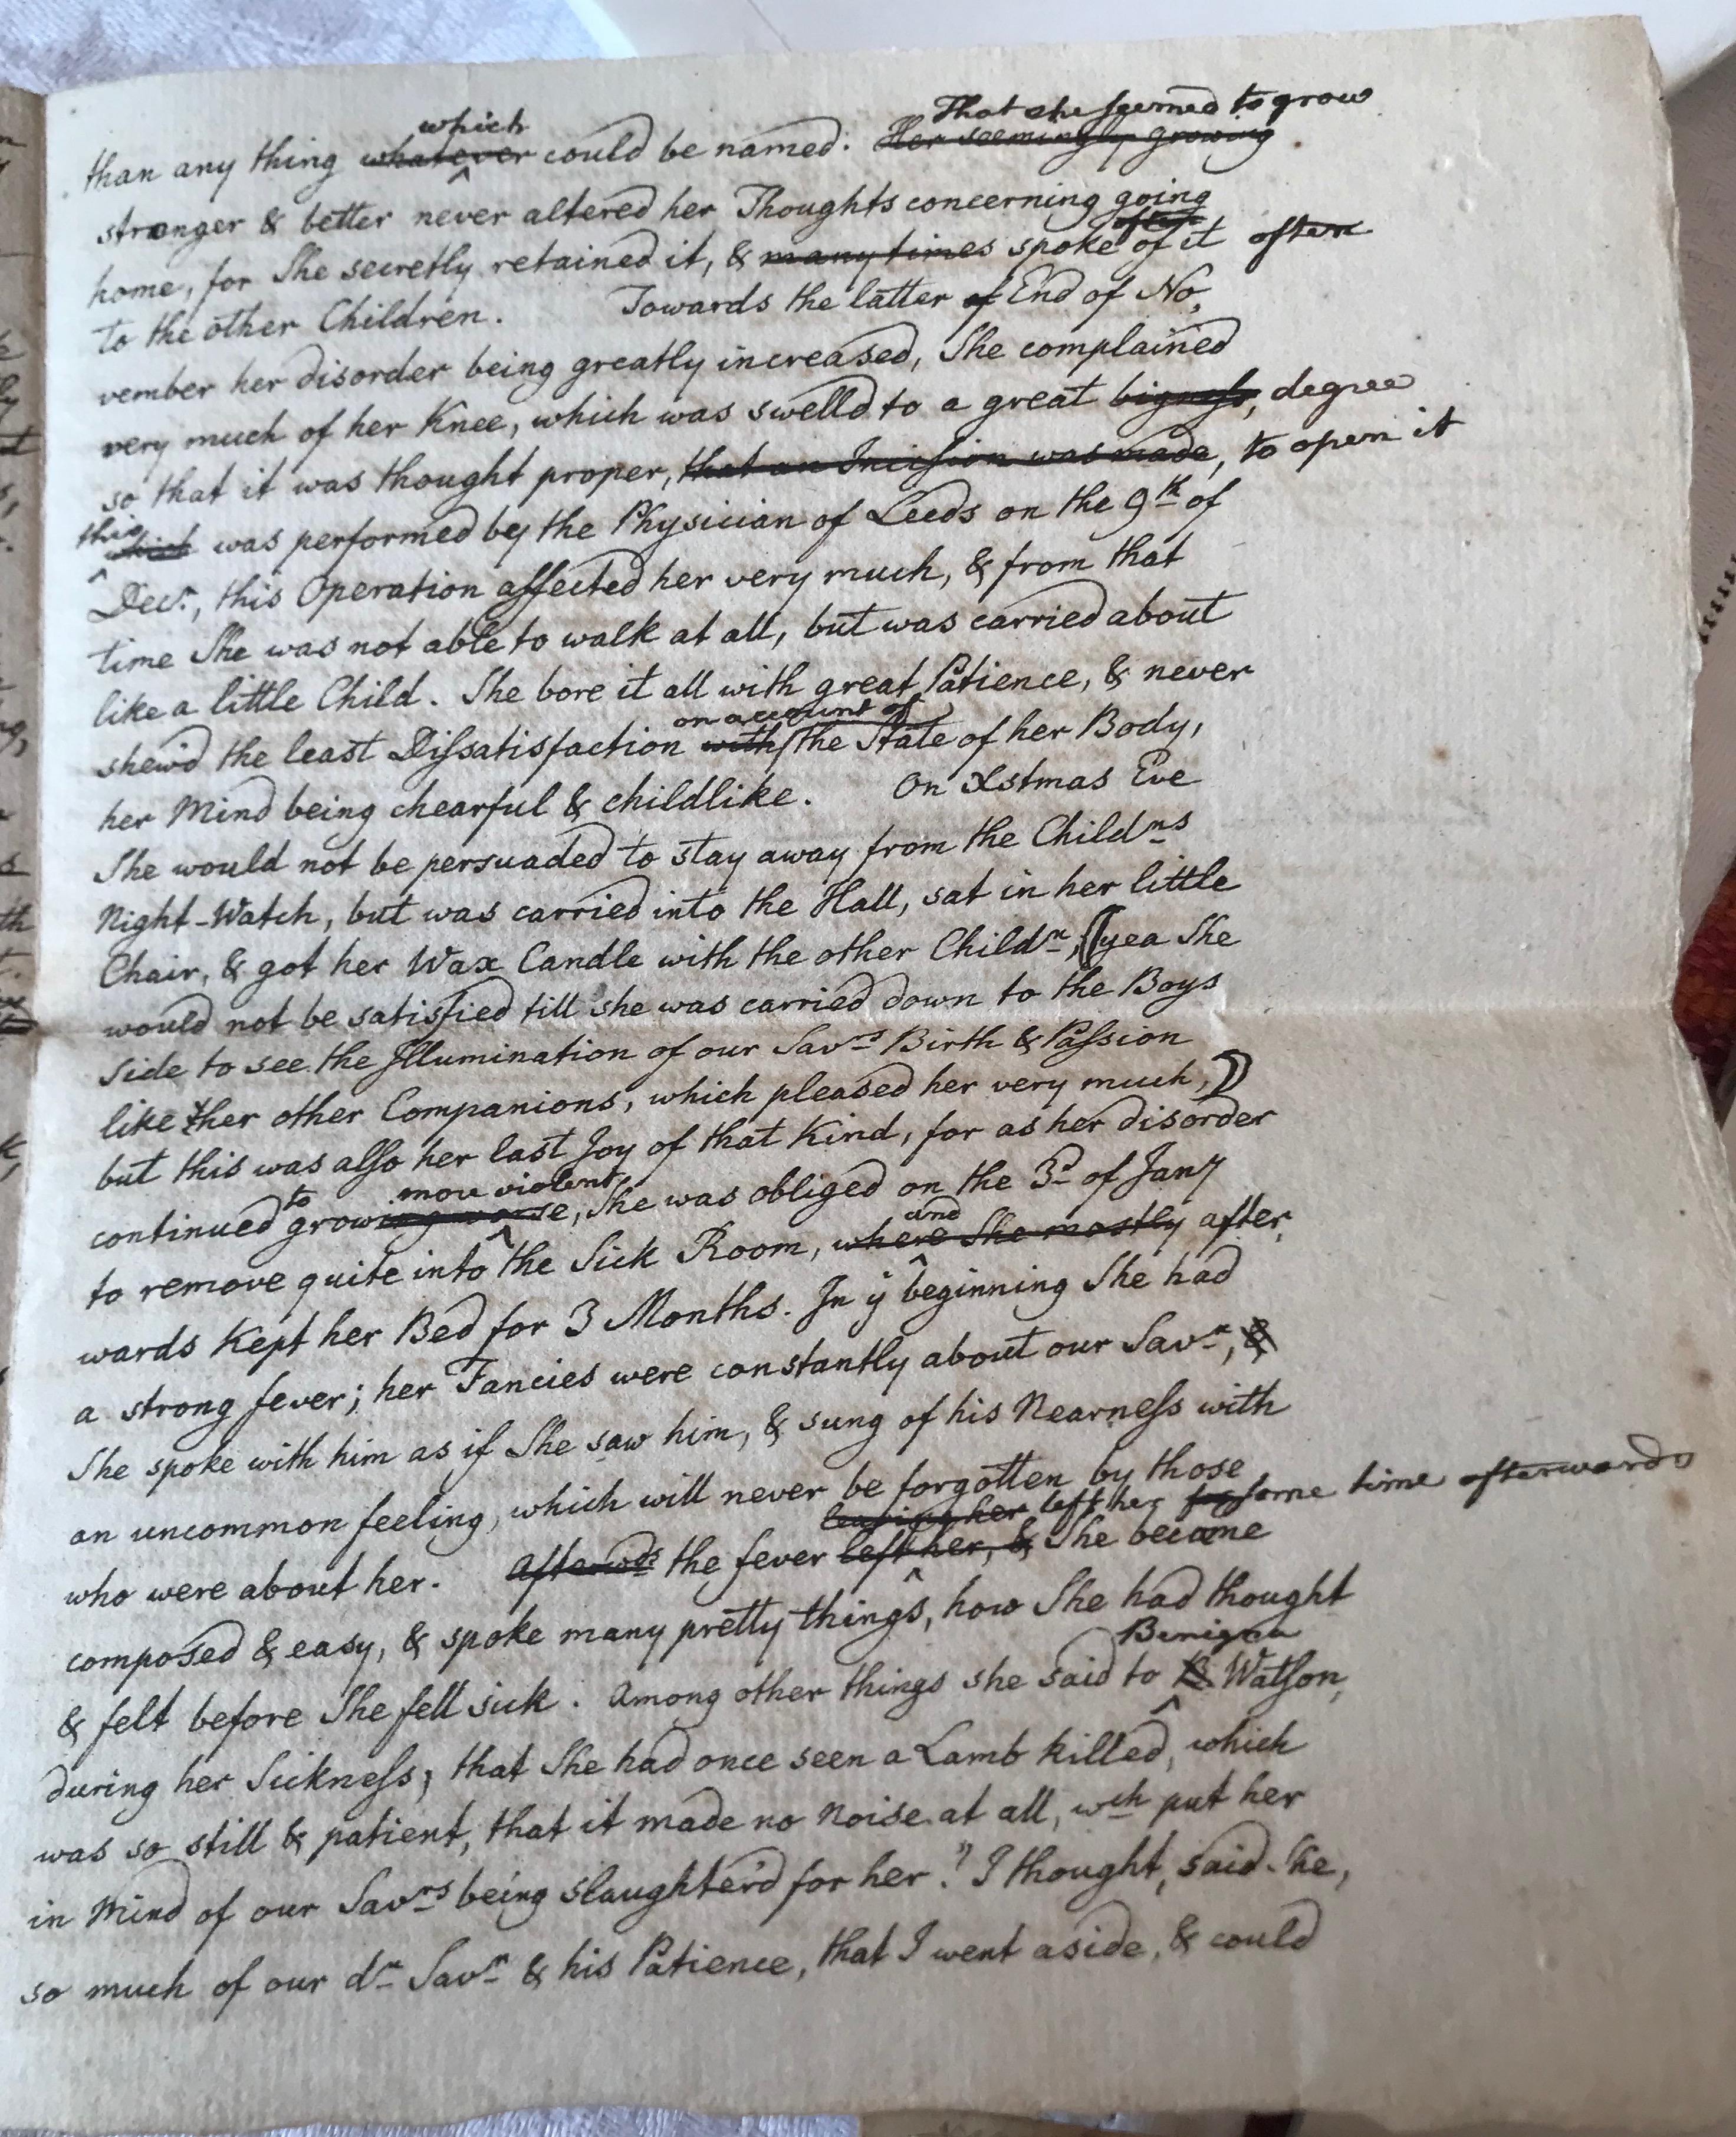 than any thing whatever which could be named. Her seemingly growing That she seemed to grow
stronger & better never altered her Thoughts concerning going
home, for She secretly retained it, & many times spoke often of it often
to the other Children. Towards the latter of End of No,
vember her disorder being greatly increased, She complained
very much of her Knee, which was swelld to a great bigness, degree
so that it was thought proper, that an Incision was made, to open it
this which was performed by the Physician of Leeds on the 9th of
Decr., this Operation affected her very much, & from that
time She was not able to walk at all, but was carried about
like a little Child. She bore it all with great Patience, & never
shew'd the least Dissatisfaction with on account of the State of her Body,
her Mind being chearful & childlike. On Xstmas Eve
She would not be persuaded to stay away from the Childns
Night-Watch, but was carried into the Hall, sat in her little
Chair, & got her Wax Candle with the other Childn, (yea She
would not be satisfied till she was carried down to the Boys
Side to see the Illumination of our Savrs Birth & Passion
like her other Companions, which pleased her very much,)
but this was also her last Joy of that Kind, for as her disorder
continued to growing worse, more violent, She was obliged on the 3d of Jany
to remove quite into the Sick Room, where She mostly and after,
wards Kept her Bed for 3 Months. In ye beginning She had
a strong fever; her Fancies were constantly about our Savr, &
She spoke with him as if She saw him, & sung of his Nearness with
an uncommon feeling, which will never be forgotten by those
who were about her. Afterwds the fever left her, & leaving her left her for some time afterwards She became
composed & easy, & spoke many pretty things, how She had thought
& felt before She fell sick. Among other things she said to B. Benigna Watson,
during her Sickness, that She had once seen a Lamb killed, which
was so still & patient, that it made no Noise at all, wch put her
in Mind of our Savrs being slaughter'd for her. " I thought, said She,
so much of our dr Savr & his Patience, that I went aside, & could